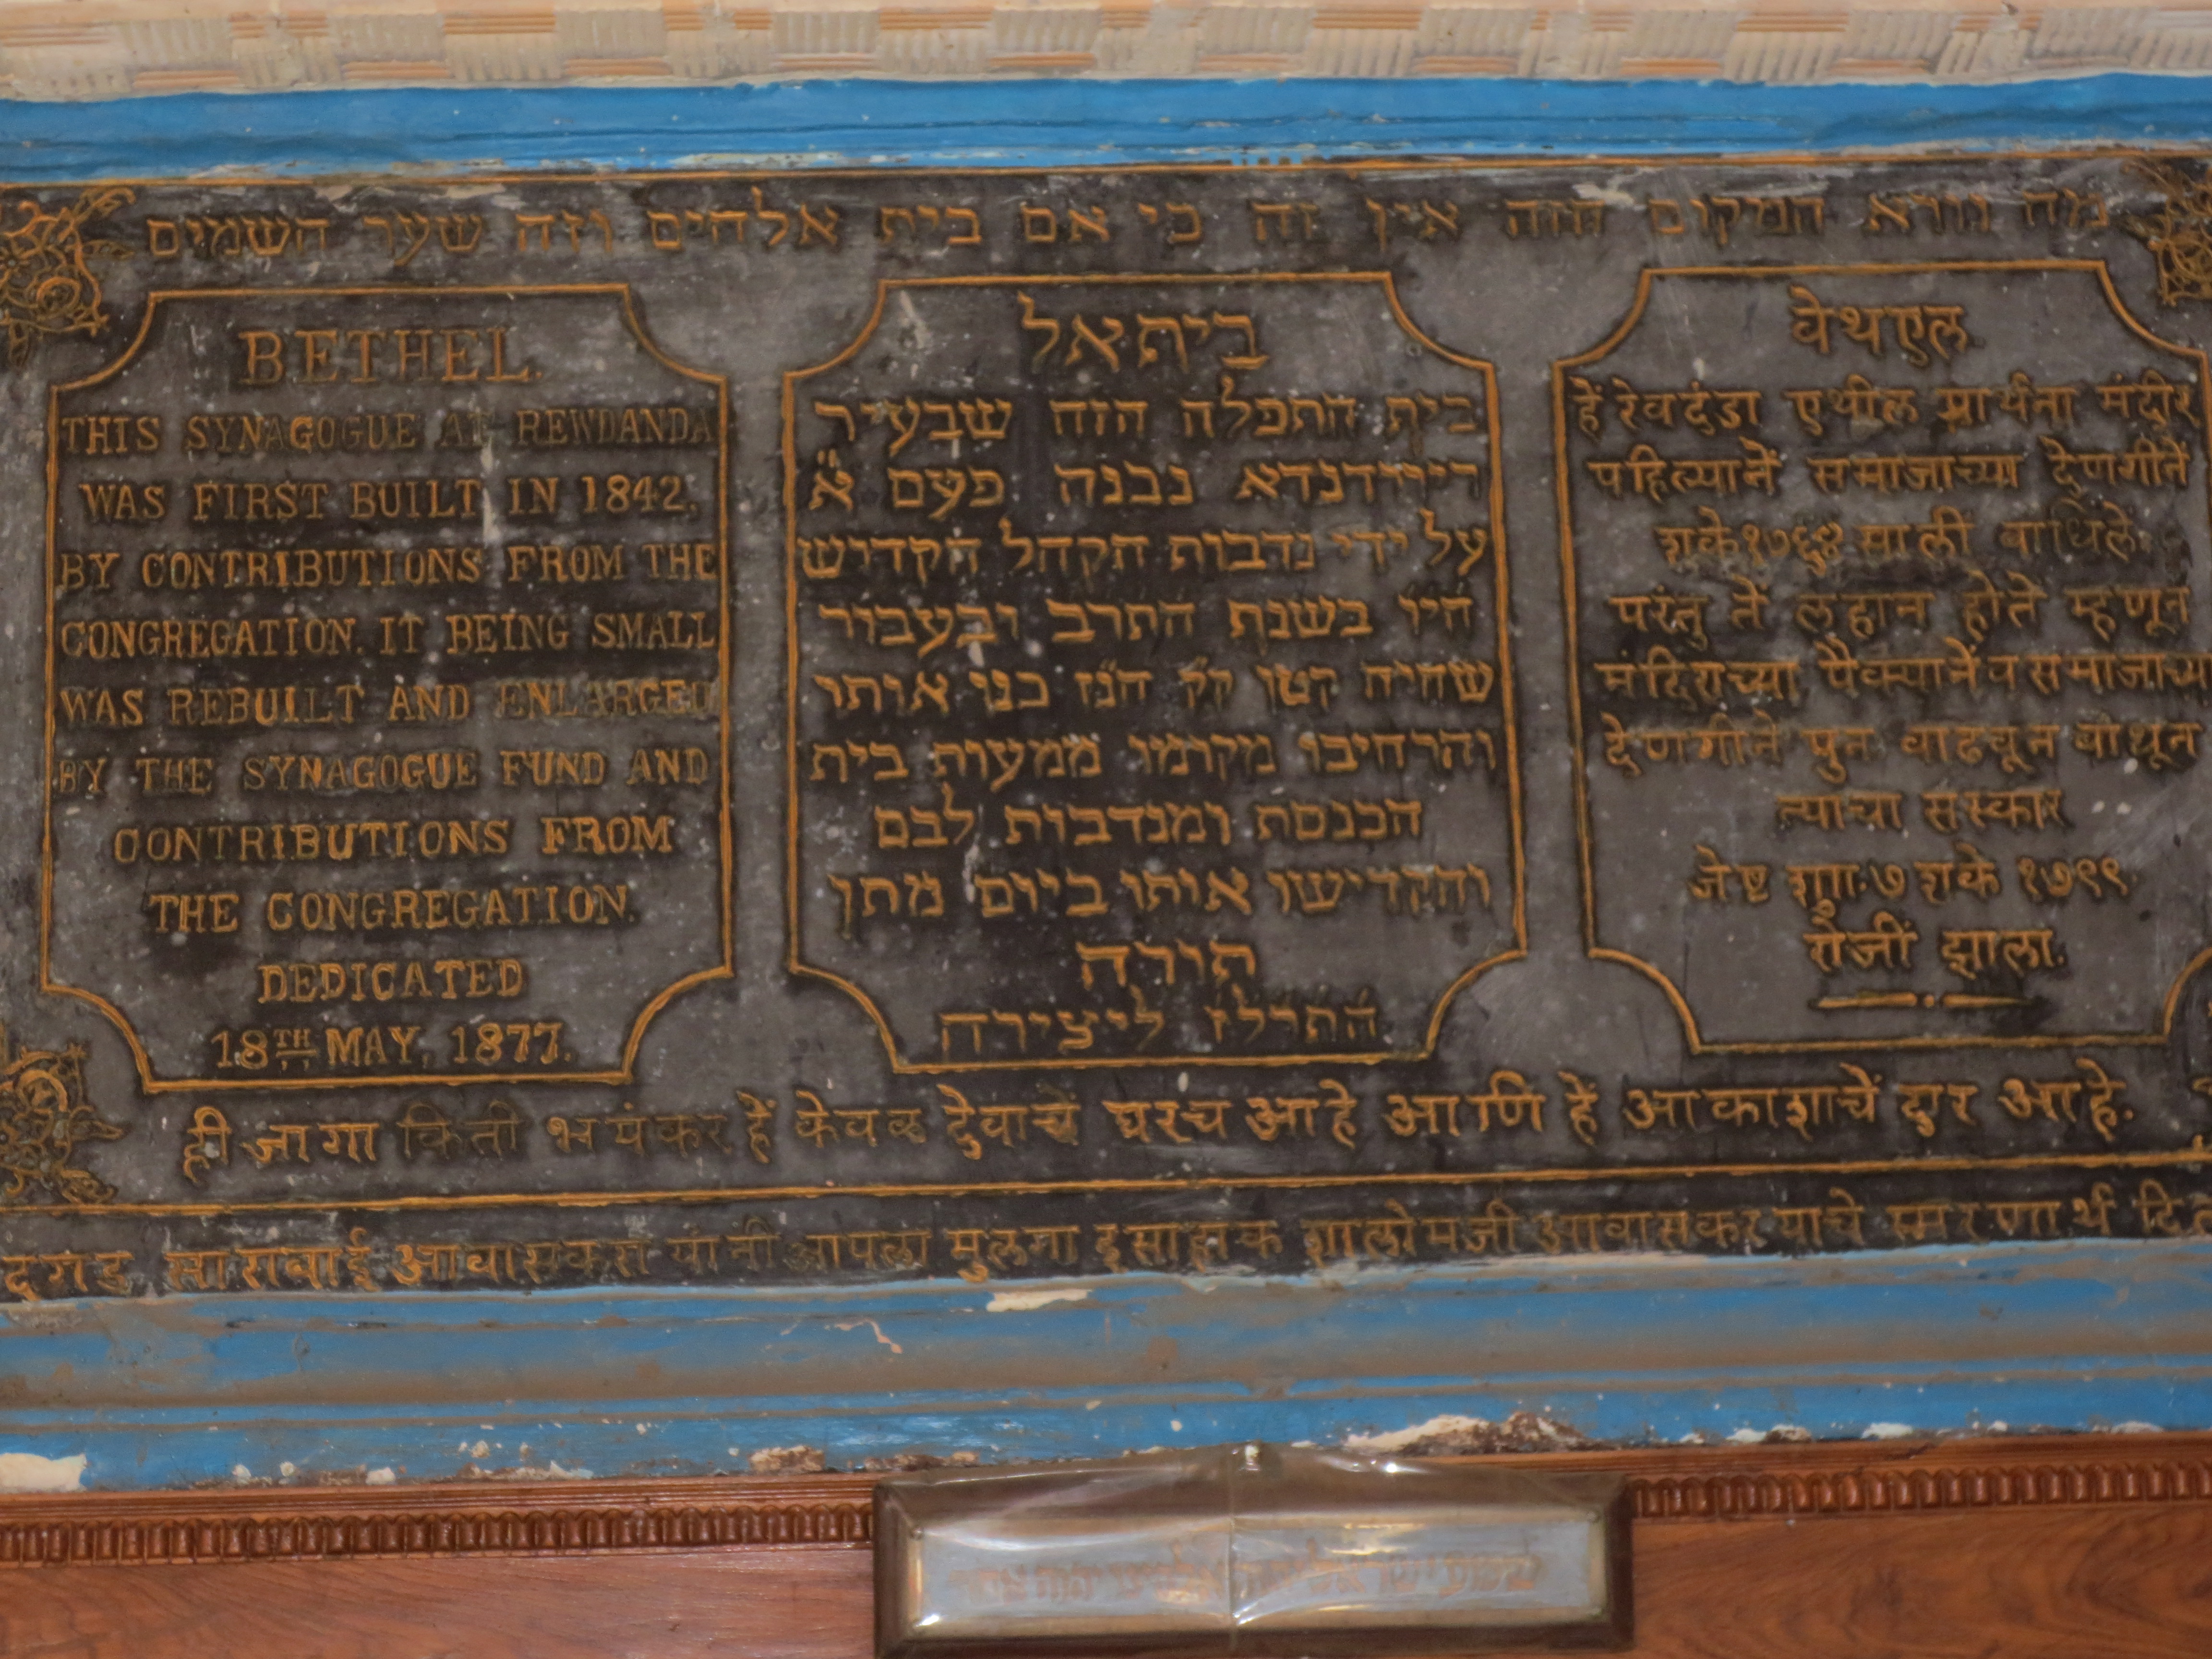 מה נורא המקום הזה אין זה כי אם בית אלהים וזה שער השמים
BETHEL.
THIS SYNAGOGUE AT REWDANDA
WAS FIRST BUILT IN 1842,
BY CONTRIBUTIONS FROM THE
CONGREGATION. IT BEING SMALL
WAS REBUILT AND ENLARGED
BY THE SYNAGOGUE FUND AND
CONTRIBUTIONS FROM
THE CONGREGATION.
DEDICATED
18TH MAY, 1877.
ביתאל
בית התפלה הזה שבעיר
רייודנדא נבנה פעם א
על ידי נדבות הקהל הקדיש
הי״ו בשנת התרב ובעבור
שהיה קטן ק״ק הנ״ז בנו אותו
והרחיבו מקומו ממעות בית
הכנסת ומנדבות לבם
והקדישו אותו ביום מתן
תורה
התרלז ליצירה
बेथएल
हें रेवदंडा एथील प्रार्थना मंदीर
पहिल्यानें समाजाच्या देणगीनें
शके १७६४ साली बाधिलें.
परंतु तें लहान होतें म्हणून
मंदिराच्या पैक्यानें व समाजाच्या
देणगीनें पुन वाढवून बांधून
त्याचा संस्कार
जेष्ट शुाा ७ शके १७९९
रोजीं झाला.
ही जागा किती भयंकर हें केवळ देवाचें घरच आहे आणि हें आकाशाचें दार आहे.
दगड साराबाई आवासकरा यांनी आपला मुलगा इसाहाक शालोमजी आवासकर याचे स्मरणार्थ